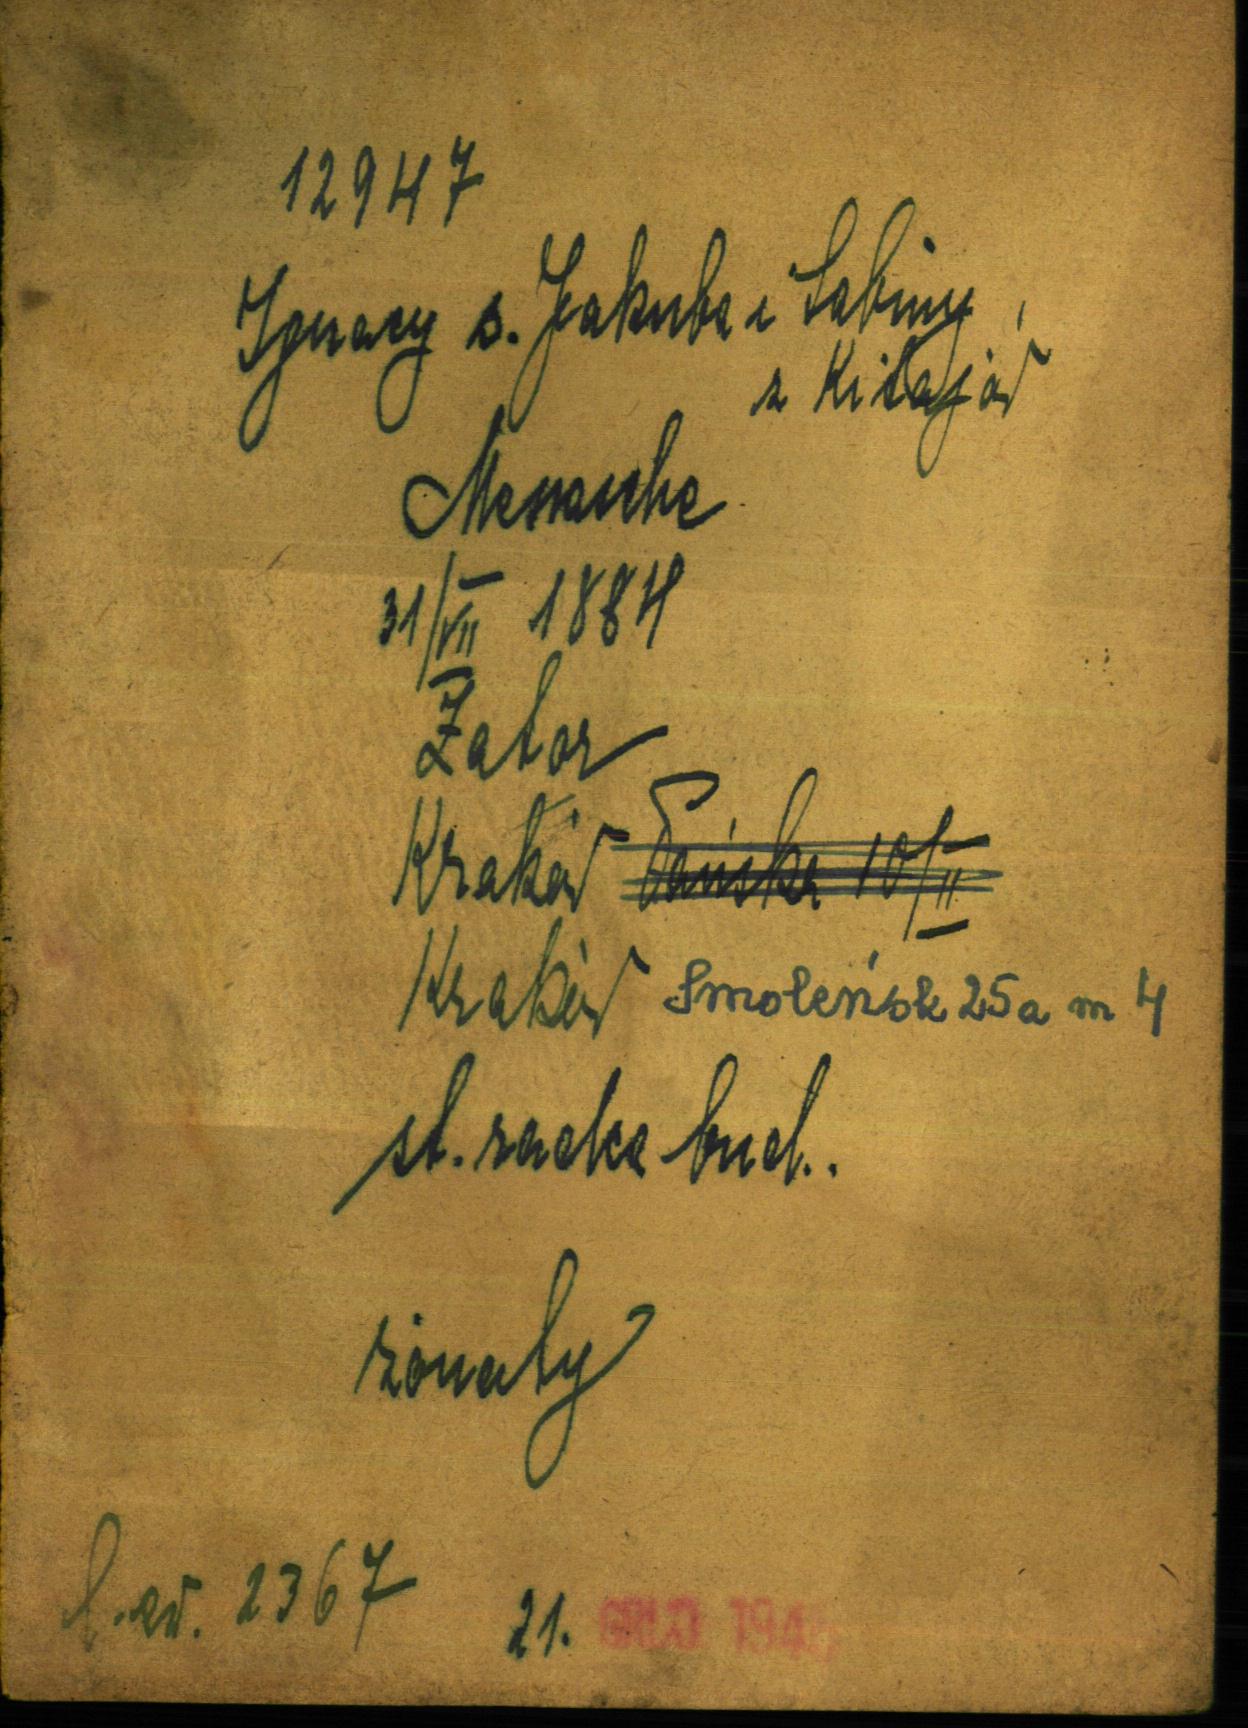 12947
Ignacy s. Jakuba i Sabiny
z Kitajów
Menasche
31/VII 1884
Zator
Kraków Pańska 10/II
Kraków Smoleńsk 25a m 4
st. radca bud.
żonaty
L. ew. 2367
21. GRUD 194